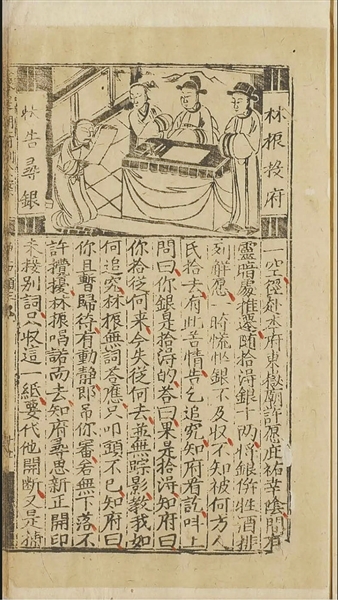 林振投府
狀告尋銀
一空徑赴本府東嶽廟許愿庇祐幸陰間有
靈暗處推還隨拾淂銀十兩將銀併牲酒排
列解愿一時慌忙銀不及收不知被何方人
氏拾去有此苦情告乞追究知府看訴叫上
問曰你銀是拾淂的荅曰果是拾淂知府曰
你拾從何來今失從何去並無踪影教我如
何追究林振無詞荅應只叩頭不已知府曰
你且暫歸待有動靜即吊你審若無下落不
許攪擾林振唱諾而去知府尋思新正開印
未接別詞只收這一紙要代他開斷又是